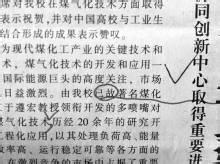 席对我校在煤气化技术方面取得
并对中国高校与工业生
结合形成的成果表示赞叹。
为现代煤化工产业的关键技术和
术,煤气化技术的开发和应用一
国际能源巨头的高度关注,市场
日益激烈。由我校已故著名煤化
于遵宏教授领衔开发的多喷嘴对
煤气化技术历经20余年的研究开
程化应用,以其处理负荷高、能量
效率高、运行稳定可靠等各方面
同创新中心取得重要进